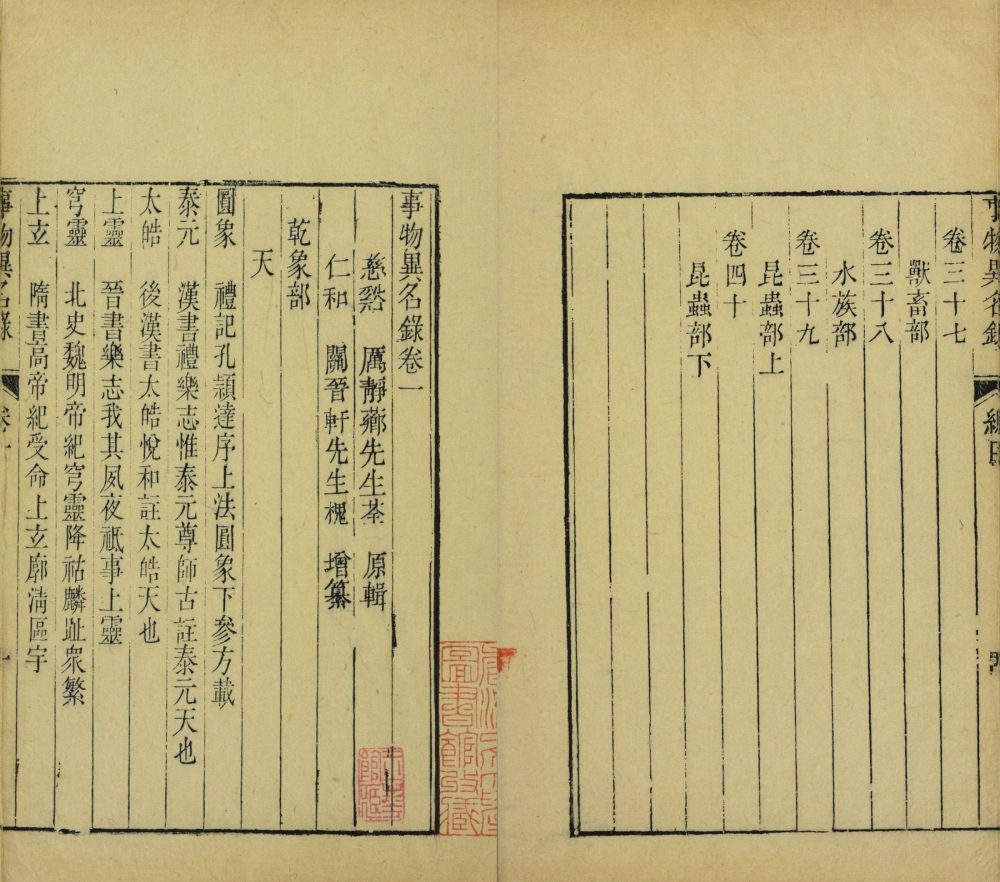 事物異名錄
總目
卷三十七
獸畜部
卷三十八
水族部
卷三十九
昆蟲部上
卷四十
昆蟲部下
事物異名錄卷一
慈谿 厲靜薌先生荃 原輯
仁和 關晉軒先生槐 增纂
乾象部
天
圓象 禮記孔頴達序上法圓象下參方載
泰元 漢書禮樂志惟泰元尊師古註泰元天也
太皓 後漢書太皓悅和註太皓天也
上靈 晉書樂志我其夙夜祗事上靈
穹靈 北史魏明帝紀穹靈降祐麟趾衆繁
上玄 隋書高帝紀受命上玄廓淸區宇
事物異名錄
卷一
一